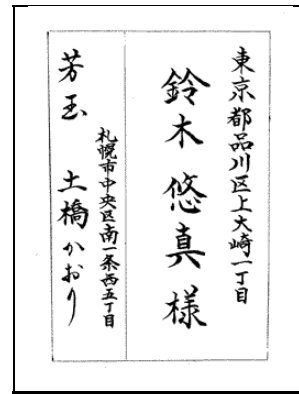 東京都品川区上大崎一丁目
鈴木悠真様
札幌市中央区南一条西五丁目
芳玉 土橋かおり